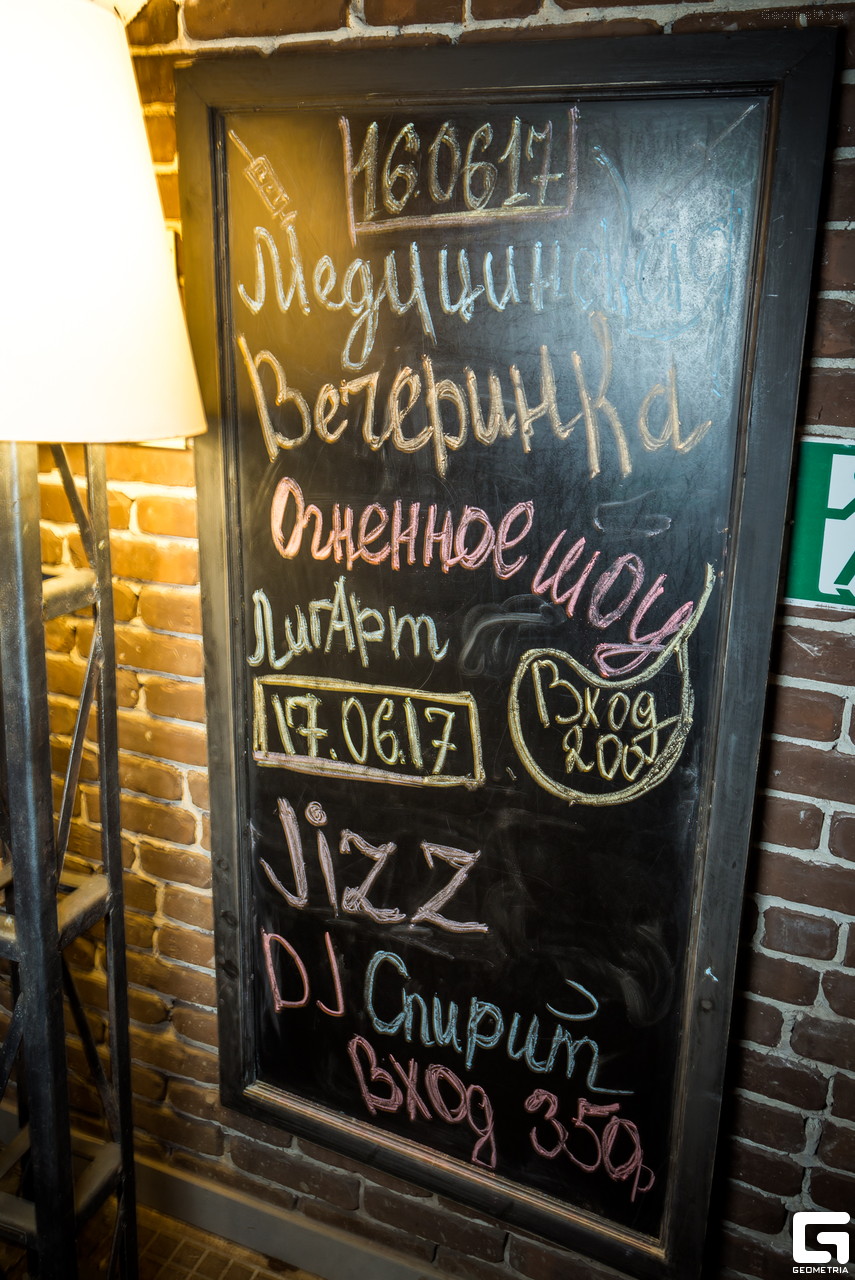 Geometria
16.06.17
Медицинская
Вечеринка
Огненное шоу
ЛигАрт
Вход
200
17.06.17
Jizz
DJ Спирит
Вход 350р
GEOMETRIA